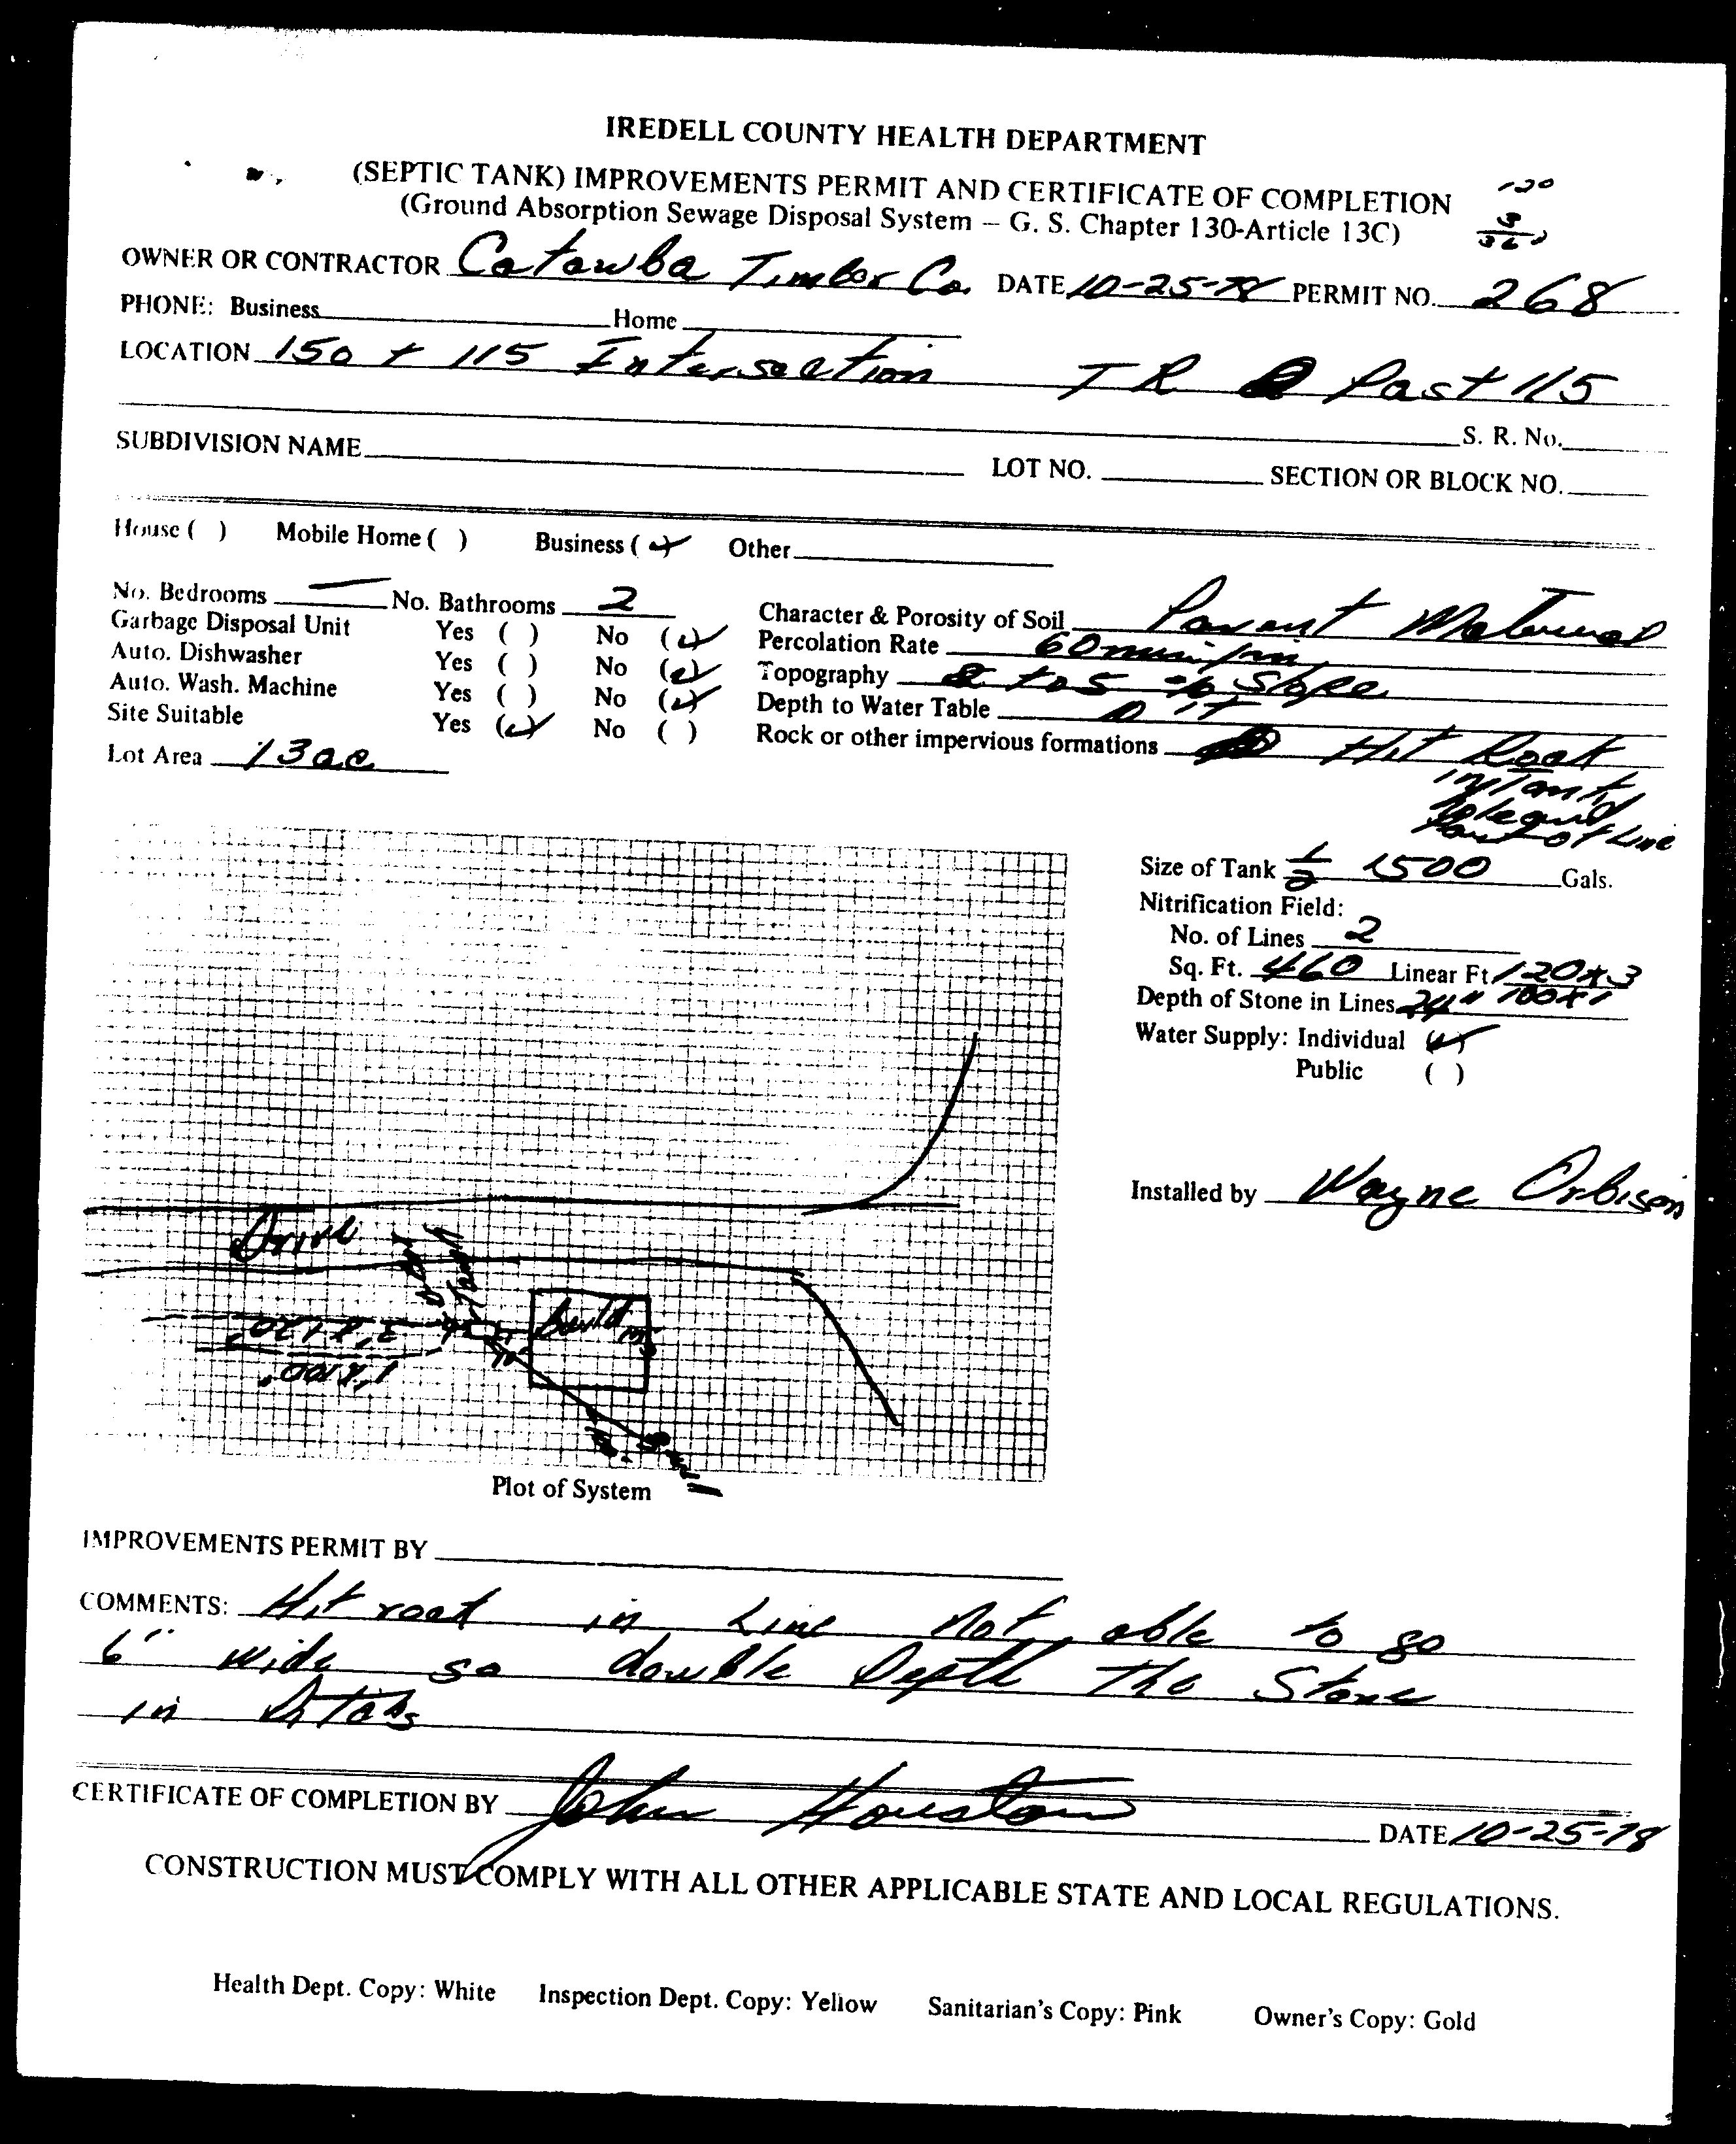 IREDELL COUNTY HEALTH DEPARTMENT
(SEPTIC TANK) IMPROVEMENTS PERMIT AND CERTIFICATE OF COMPLETION
120
(Ground Absorption Sewage Disposal System – G. S. Chapter 130-Article 13C)
3
36
OWNER OR CONTRACTOR Catawba Timber Co. DATE 10-25-78 PERMIT NO. 268
PHONE: Business Home
LOCATION 150 + 115 Intersection TR Past 115
S. R. No.
SUBDIVISION NAME LOT NO. SECTION OR BLOCK NO.
House ( ) Mobile Home ( ) Business (✓) Other
No. Bedrooms — No. Bathrooms 2 Character & Porosity of Soil Parent Material
Garbage Disposal Unit Yes ( ) No (✓) Percolation Rate 60 min/in
Auto. Dishwasher Yes ( ) No (✓) Topography 2 to 5 % Slope
Auto. Wash. Machine Yes ( ) No (✓) Depth to Water Table
Site Suitable Yes (✓) No ( ) Rock or other impervious formations Hit Rock
Lot Area 13 ac
in Tank
hole and
Part of Line
Size of Tank 1500 Gals.
Nitrification Field:
No. of Lines 2
Sq. Ft. 460 Linear Ft 120x3
Depth of Stone in Lines 24" 100x1
Water Supply: Individual (✓)
Public ( )
Installed by Wayne Orbison
Drive
Tank
build
3'x120'
1'x100'
Plot of System
IMPROVEMENTS PERMIT BY
COMMENTS: Hit rock in Line Not able to go
6" wide so double Depth The Stone
in
CERTIFICATE OF COMPLETION BY John Houston
DATE 10-25-78
CONSTRUCTION MUST COMPLY WITH ALL OTHER APPLICABLE STATE AND LOCAL REGULATIONS.
Health Dept. Copy: White Inspection Dept. Copy: Yellow Sanitarian's Copy: Pink Owner's Copy: Gold